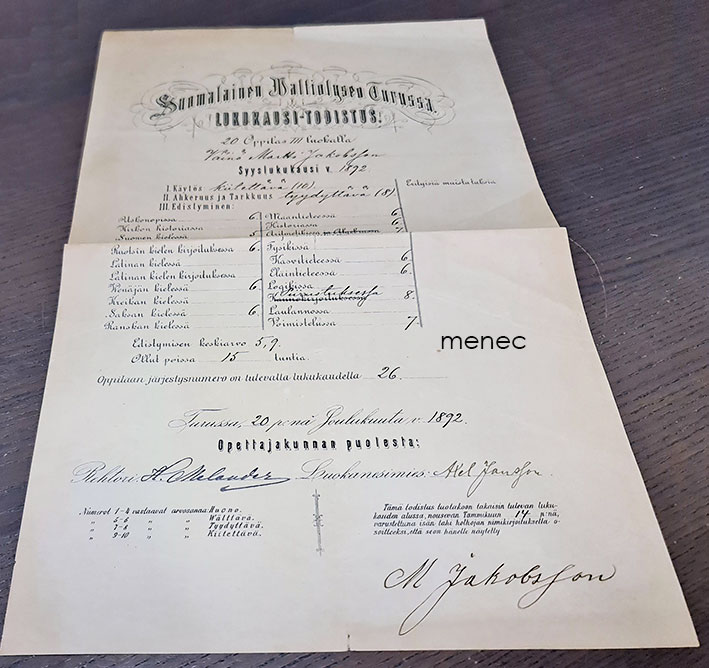 Suomalainen Waltiolyseo Turussa.
LUKUKAUSI-TODISTUS.
20 Oppilas III luokalla
Väinö Martti Jakobsson
Syyslukukausi v. 1892.
I. Käytös kiitettävä (10)
II. Ahkeruus ja Tarkkuus tyydyttävä (8)
III. Edistyminen:
Erityisiä muistutuksia
Uskonopissa 6.
Kirkon historiassa
Suomen kielessä 5
Ruotsin kielen kirjoituksessa 6.
Latinan kielessä
Latinan kielen kirjoituksessa
Venäjän kielessä 6
Kreikan kielessä
Saksan kielessä 6
Ranskan kielessä
Maantieteessä 6.
Historiassa 6.
Aritmetikissa ja Algebrassa 7.
Fysikissä
Kasvitieteessä 6.
Eläintieteessä 6.
Logikissa
Piirustuksessa
Kaunokirjoituksessa 8.
Laulannossa
Voimistelussa 7.
Edistymisen keskiarvo 5,9.
Ollut poissa 15 tuntia.
Oppilaan järjestysnumero on tulevalla lukukaudella 26.
menec
Turussa, 20 p:nä Joulukuuta v. 1892.
Opettajakunnan puolesta:
Rehtori: K. Melander Luokanesimies: Axel Jansson.
Numerot 1-4 vastaavat arvosanaa: Huono.
" 5-6 " " Wälttävä.
" 7-8 " " Tyydyttävä.
" 9-10 " " Kiitettävä.
Tämä todistus tuotakoon takaisin tulevan luku-
kauden alussa, nousevan Tammikuun 14 p:nä,
varustettuna isän tahi holhojan nimikirjoituksella o-
soitteeksi, että se on hänelle näytetty
M Jakobsson